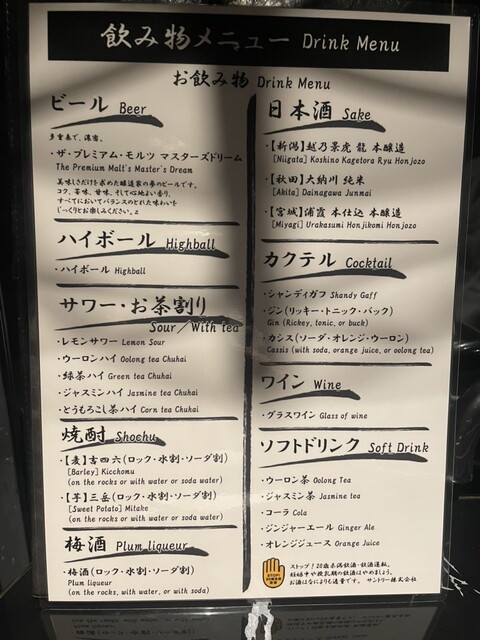 飲み物メニュー Drink Menu
お飲み物 Drink Menu
ビール Beer
多重奏で、濃密。
・ザ・プレミアム・モルツ マスターズドリーム
The Premium Malt's Master's Dream
美味しさだけを求めた醸造家の夢のビールです。
コク、苦味、甘味、そして心地よい香り。
すべてにおいてバランスのとれた味わいを
じっくりとお楽しみください。
ハイボール Highball
・ハイボール Highball
サワー・お茶割り
Sour／With tea
・レモンサワー Lemon Sour
・ウーロンハイ Oolong tea Chuhai
・緑茶ハイ Green tea Chuhai
・ジャスミンハイ Jasmine tea Chuhai
・とうもろこし茶ハイ Corn tea Chuhai
焼酎 Shochu
・【麦】吉四六(ロック・水割・ソーダ割)
[Barley] Kicchomu
(on the rocks or with water or soda water)
・【芋】三岳(ロック・水割・ソーダ割)
[Sweet Potato] Mitake
(on the rocks or with water or soda water)
梅酒 Plum liqueur
・梅酒(ロック・水割・ソーダ割)
Plum liqueur
(on the rocks, with water, or with soda)
日本酒 Sake
・【新潟】越乃景虎 龍 本醸造
[Niigata] Koshino Kagetora Ryu Honjozo
・【秋田】大納川 純米
[Akita] Dainagawa Junmai
・【宮城】浦霞 本仕込 本醸造
[Miyagi] Urakasumi Honjikomi Honjozo
カクテル Cocktail
・シャンディガフ Shandy Gaff
・ジン(リッキー・トニック・バック)
Gin (Rickey, tonic, or buck)
・カシス(ソーダ・オレンジ・ウーロン)
Cassis (with soda, orange juice, or oolong tea)
ワイン Wine
・グラスワイン Glass of wine
ソフトドリンク Soft Drink
・ウーロン茶 Oolong Tea
・ジャスミン茶 Jasmine tea
・コーラ Cola
・ジンジャーエール Ginger Ale
・オレンジジュース Orange Juice
ストップ！20歳未満飲酒・飲酒運転。
妊娠中や授乳期の飲酒はやめましょう。
お酒はなによりも適量です。 サントリー株式会社